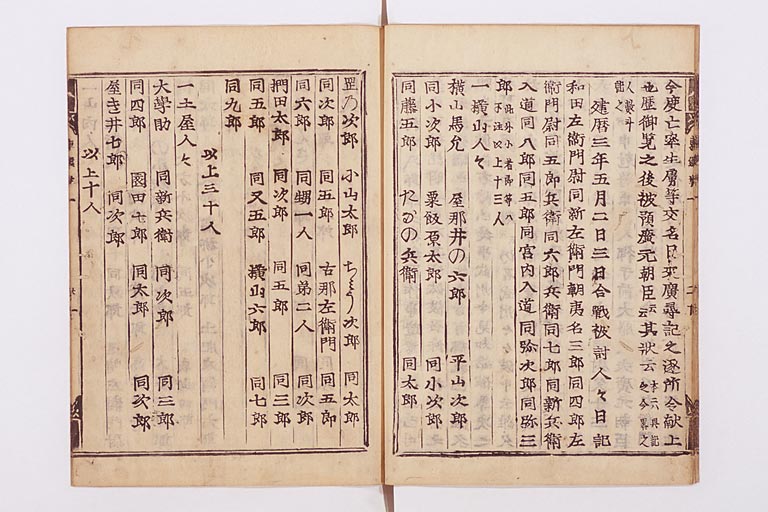 今度亡卒生虜等交名日來廣尋記之遂所令献上
也歴御覧之後被預廣元朝臣云云其状云
建暦三年五月二日三日合戦被討人々日記
和田左衛門尉同新左衛門朝夷名三郎同四郎左
衛門尉同五郎兵衛同六郎兵衛同七郎同新兵衛
入道同八郎同五郎同宮内入道同弥次郎同弥三
郎 此外小者郎等八不注以上十三人
一横山人々
横山馬允 屋那井の六郎 平山次郎
同小次郎 粟飯原太郎 同小次郎
同藤五郎 たかの兵衛 同太郎
罡乃次郎 小山太郎 次郎 同太郎
同次郎 同五郎 古那左衛門 同五郎
同六郎 同甥一人 同弟二人 同四郎
椚田太郎 同次郎 同五郎 同三郎
同五郎 同又五郎 横山六郎 同七郎
同九郎
以上三十人
一土屋人々
大學助 同新兵衛 同次郎 同三郎
同四郎 薗田七郎 同太郎 同次郎
屋き井七郎 同次郎
以上十人